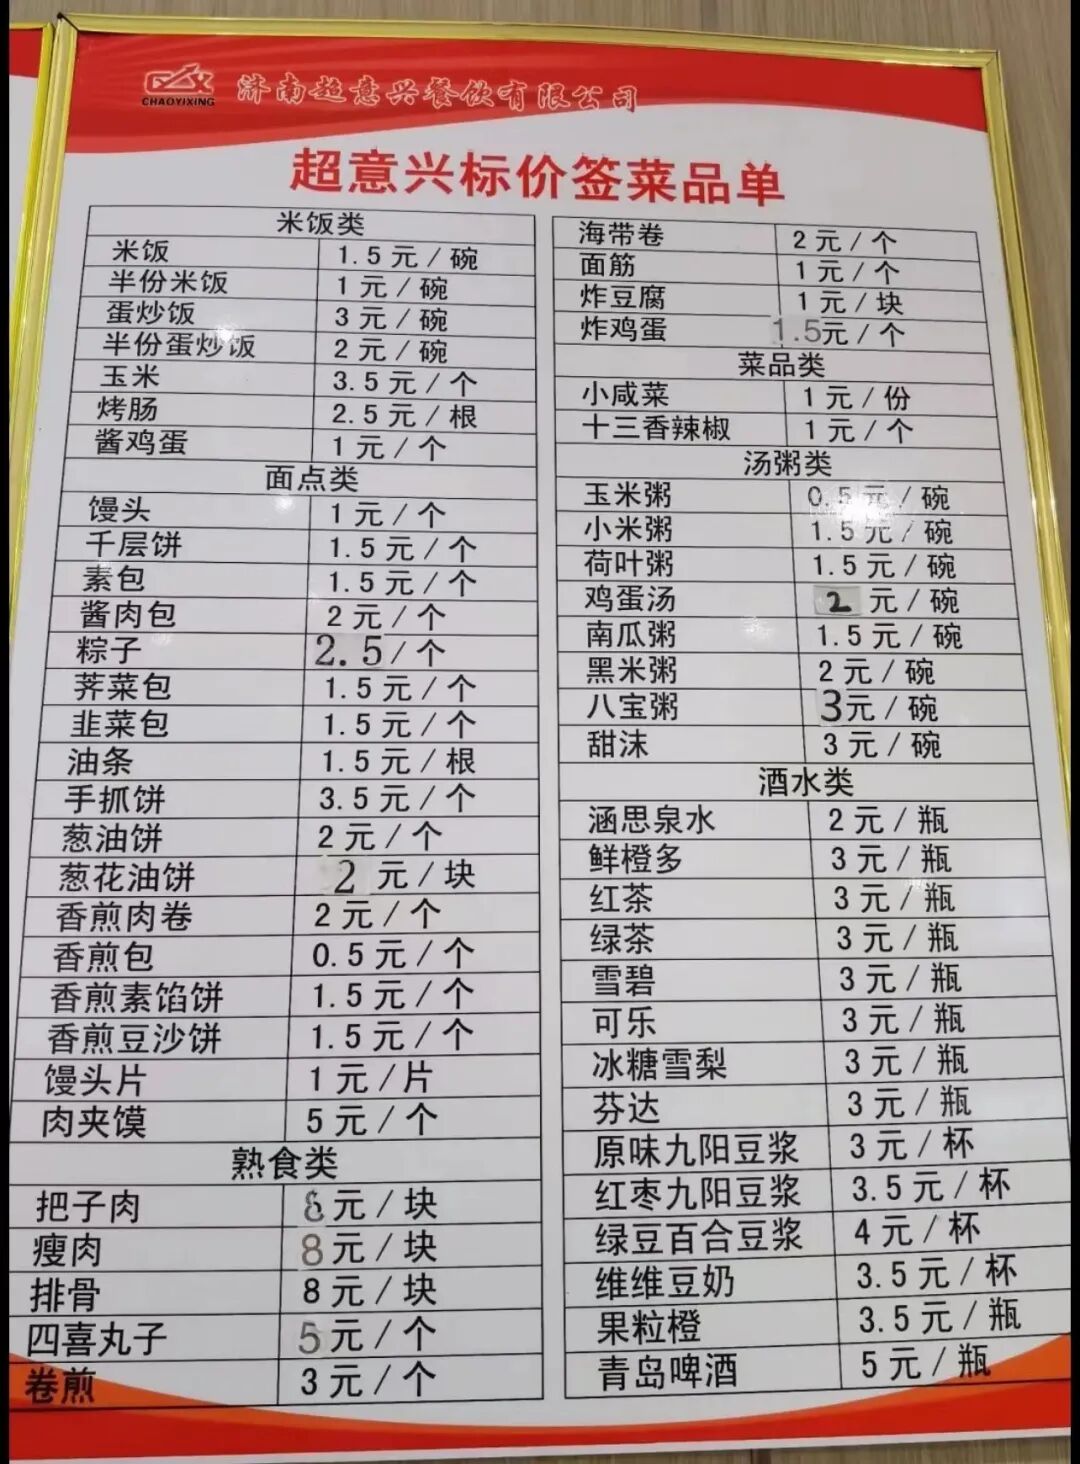 CHAOYIXING
济南超意兴餐饮有限公司
超意兴标价签菜品单
米饭类
米饭 1.5元/碗
半份米饭 1元/碗
蛋炒饭 3元/碗
半份蛋炒饭 2元/碗
玉米 3.5元/个
烤肠 2.5元/根
酱鸡蛋 1元/个
面点类
馒头 1元/个
千层饼 1.5元/个
素包 1.5元/个
酱肉包 2元/个
粽子 2.5/个
荠菜包 1.5元/个
韭菜包 1.5元/个
油条 1.5元/根
手抓饼 3.5元/个
葱油饼 2元/个
葱花油饼 2元/块
香煎肉卷 2元/个
香煎包 0.5元/个
香煎素馅饼 1.5元/个
香煎豆沙饼 1.5元/个
馒头片 1元/片
肉夹馍 5元/个
熟食类
把子肉 8元/块
瘦肉 8元/块
排骨 8元/块
四喜丸子 5元/个
卷煎 3元/个
海带卷 2元/个
面筋 1元/个
炸豆腐 1元/块
炸鸡蛋 1.5元/个
菜品类
小咸菜 1元/份
十三香辣椒 1元/个
汤粥类
玉米粥 0.5元/碗
小米粥 1.5元/碗
荷叶粥 1.5元/碗
鸡蛋汤 2元/碗
南瓜粥 1.5元/碗
黑米粥 2元/碗
八宝粥 3元/碗
甜沫 3元/碗
酒水类
涵思泉水 2元/瓶
鲜橙多 3元/瓶
红茶 3元/瓶
绿茶 3元/瓶
雪碧 3元/瓶
可乐 3元/瓶
冰糖雪梨 3元/瓶
芬达 3元/瓶
原味九阳豆浆 3元/杯
红枣九阳豆浆 3.5元/杯
绿豆百合豆浆 4元/杯
维维豆奶 3.5元/杯
果粒橙 3.5元/瓶
青岛啤酒 5元/瓶